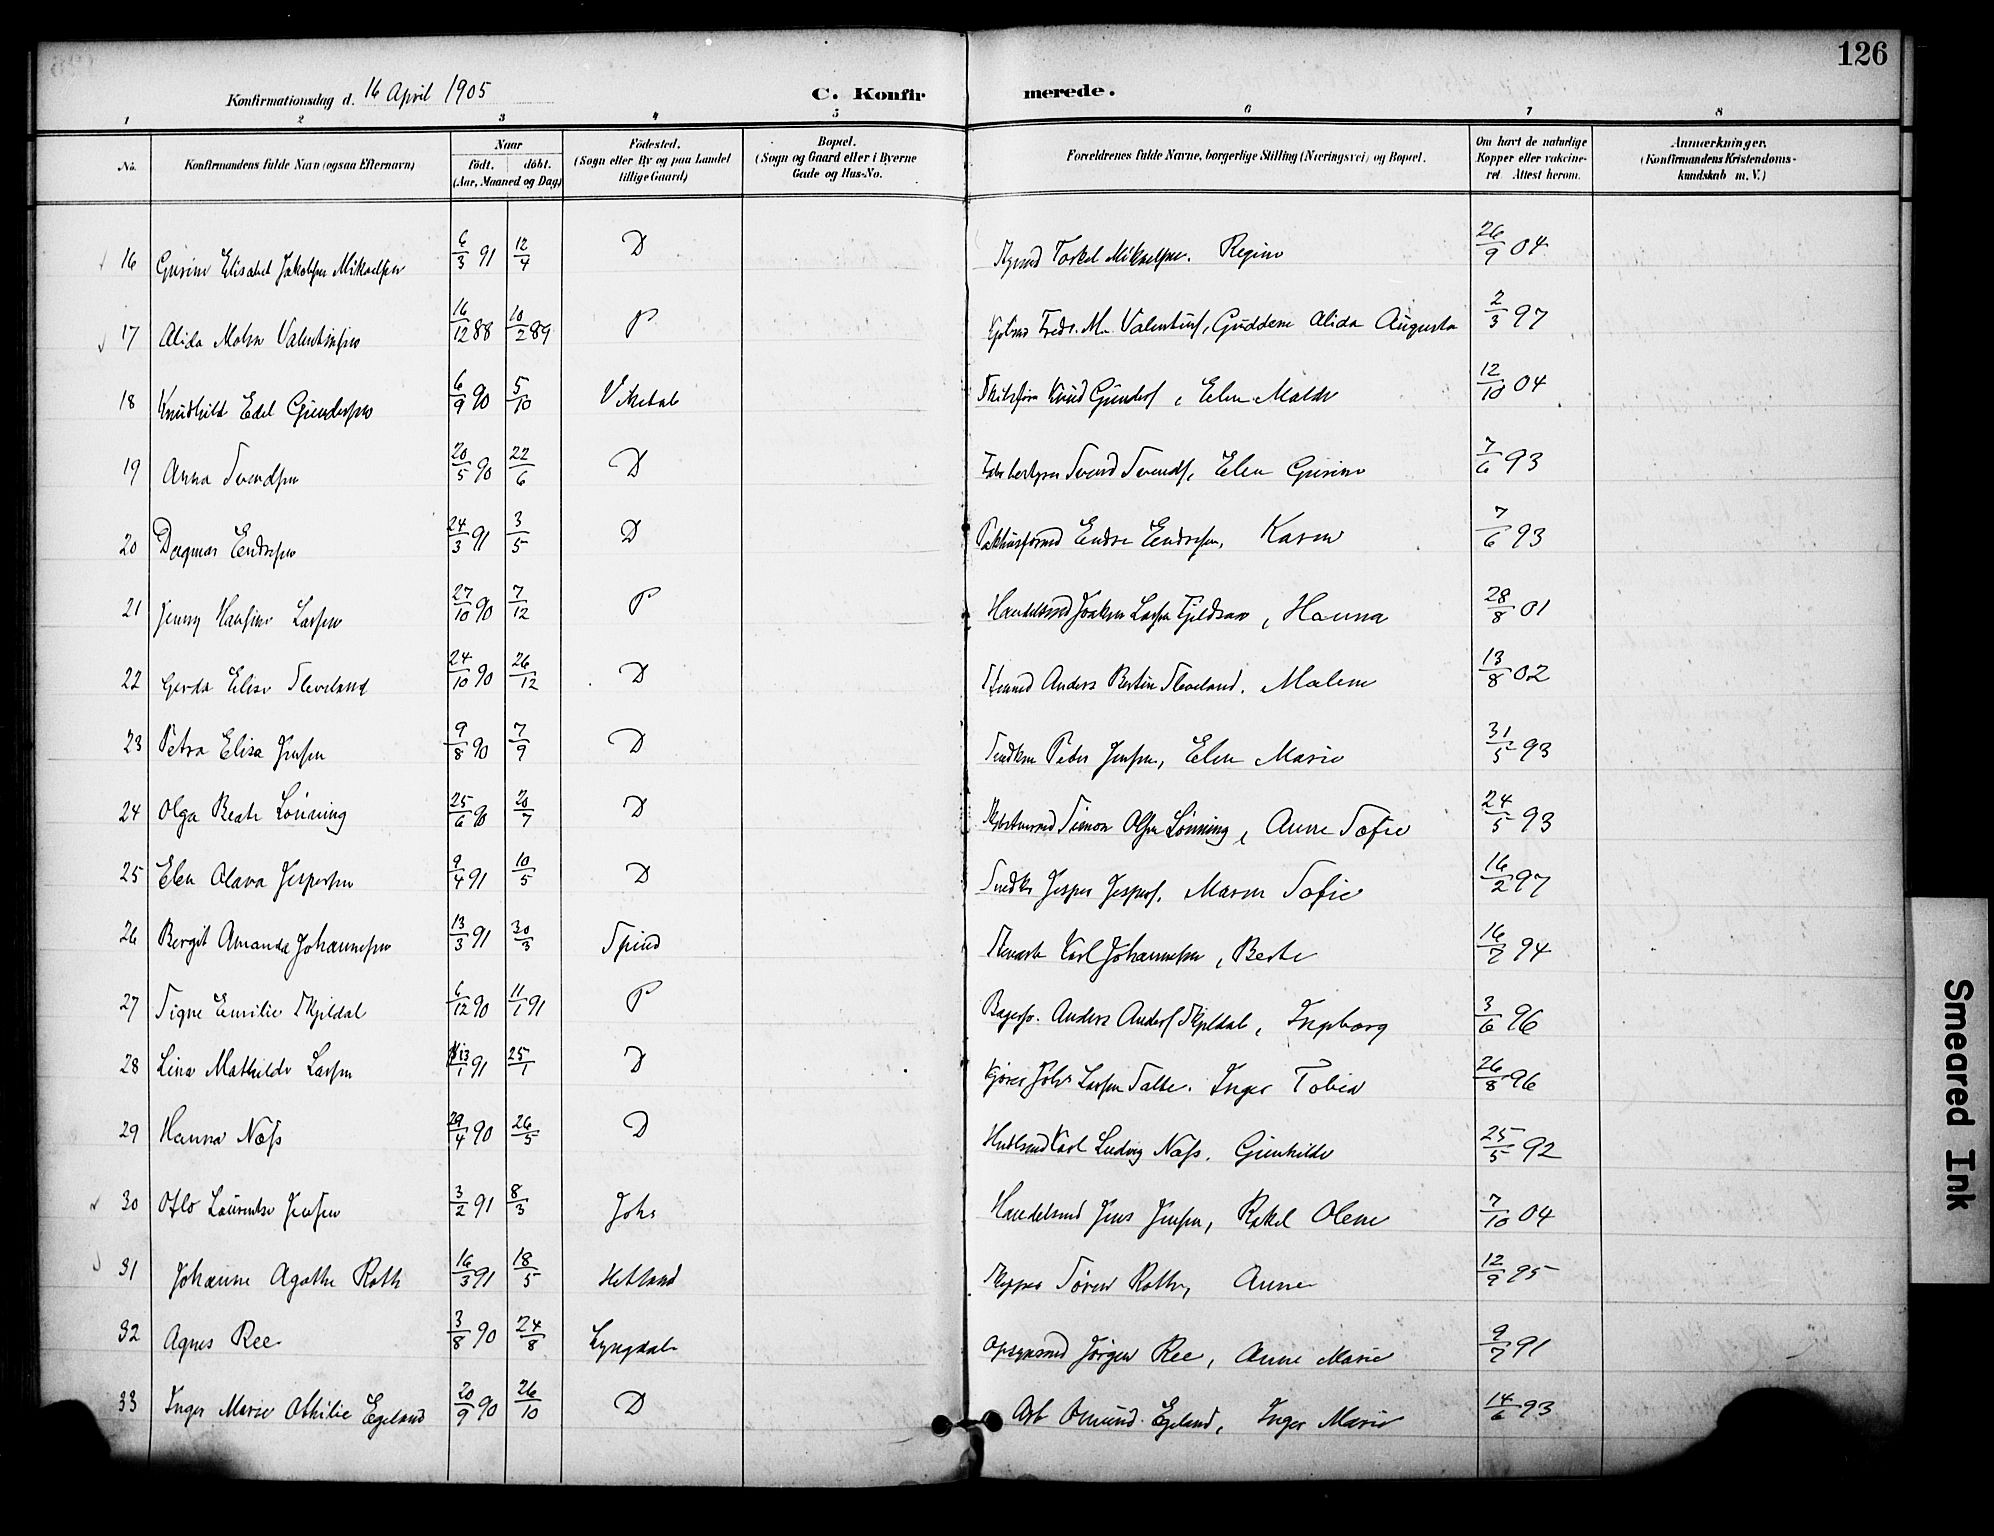 126
Konfirmationsdag d. 16 April 1905
C. Konfirmerede.
1 2 3 4 5 6 7 8
No. Konfirmandens fulde Navn (ogsaa Efternavn) Naar født. døbt. (Aar, Maaned og Dag) Fødested. (Sogn eller By og paa Landet tillige Gaard) Bopæl. (Sogn og Gaard eller i Byerne Gade og Hus-No. Forældrenes fulde Navne, borgerlige Stilling (Næringsvei) og Bopæl. Om havt de naturlige Kopper eller vakcineret Attest herom. Anmærkninger. (Konfirmandens Kristendomskundskab m. V.)
16 Gurine Elisabet Jakobsen Mikaelsen 6/3 91 12/4 D Torkel Mikaelsen. Regine 26/9 04
17 Alida Malen Valentinsen 16/12 88 10/2 89 P Fredr. M. Valentins, Guddene Alida Augusta 2/3 97
18 Knudhild Edel Gundersen 6/9 90 5/10 Vikedal Knud Gunders, Elen Malde 12/10 04
19 Anna Svendsen 20/5 90 22/6 D Svend Svends, Elen Gurine 7/6 93
20 Dagmar Endresen 24/3 91 3/5 D Pakhusformd Endre Endresen, Karen 7/6 93
21 Jenny Hansine Larsen 27/10 90 7/12 P Handelsmd Joakim Larsen Fjeldsaa, Hanna 28/8 01
22 Gerda Elise Sleveland 24/10 90 26/12 D Anders Bertin Sleveland. Malene 13/8 02
23 Petra Elisa Jensen 9/8 90 7/9 D Snedker Peder Jensen, Elen Marie 31/5 93
24 Olga Beate Lønning 25/6 90 20/7 D Simon Olsen Lønning, Anne Sofie 24/5 93
25 Elen Olava Jespersen 9/4 91 10/5 D Snedkr Jesper Jespers. Maren Sofie 16/2 97
26 Bergit Amanda Johannesen 13/3 91 30/3 Spind Karl Johannesen, Berte 16/7 94
27 Signe Emilie Skjeldal 6/12 90 11/1 91 P Bagersv. Anders Anders Skjeldal, Ingeborg 3/6 96
28 Lina Mathilde Larsen 13/1 91 25/1 D Kjører Johs Larsen Salte. Inger Tobea 26/8 96
29 Hanna Næss 29/4 90 26/5 D Karl Ludvig Næss. Gunhilde 25/5 92
30 Otlo Laurentse Jensen 3/2 91 8/3 Johs Handelsmd Jens Jensen, Rakel Olene 7/10 04
31 Johanne Agathe Roth 16/3 91 18/5 Hetland Skipper Søren Roth, Anne 12/9 95
32 Agnes Ree 3/8 90 24/8 Lyngdal Opsynsmd Jørgen Ree, Anne Marie 9/7 91
33 Inger Marie Othilie Egeland 20/9 90 26/10 D Arb Omund Egeland, Inger Marie 14/6 93
Smeared Ink